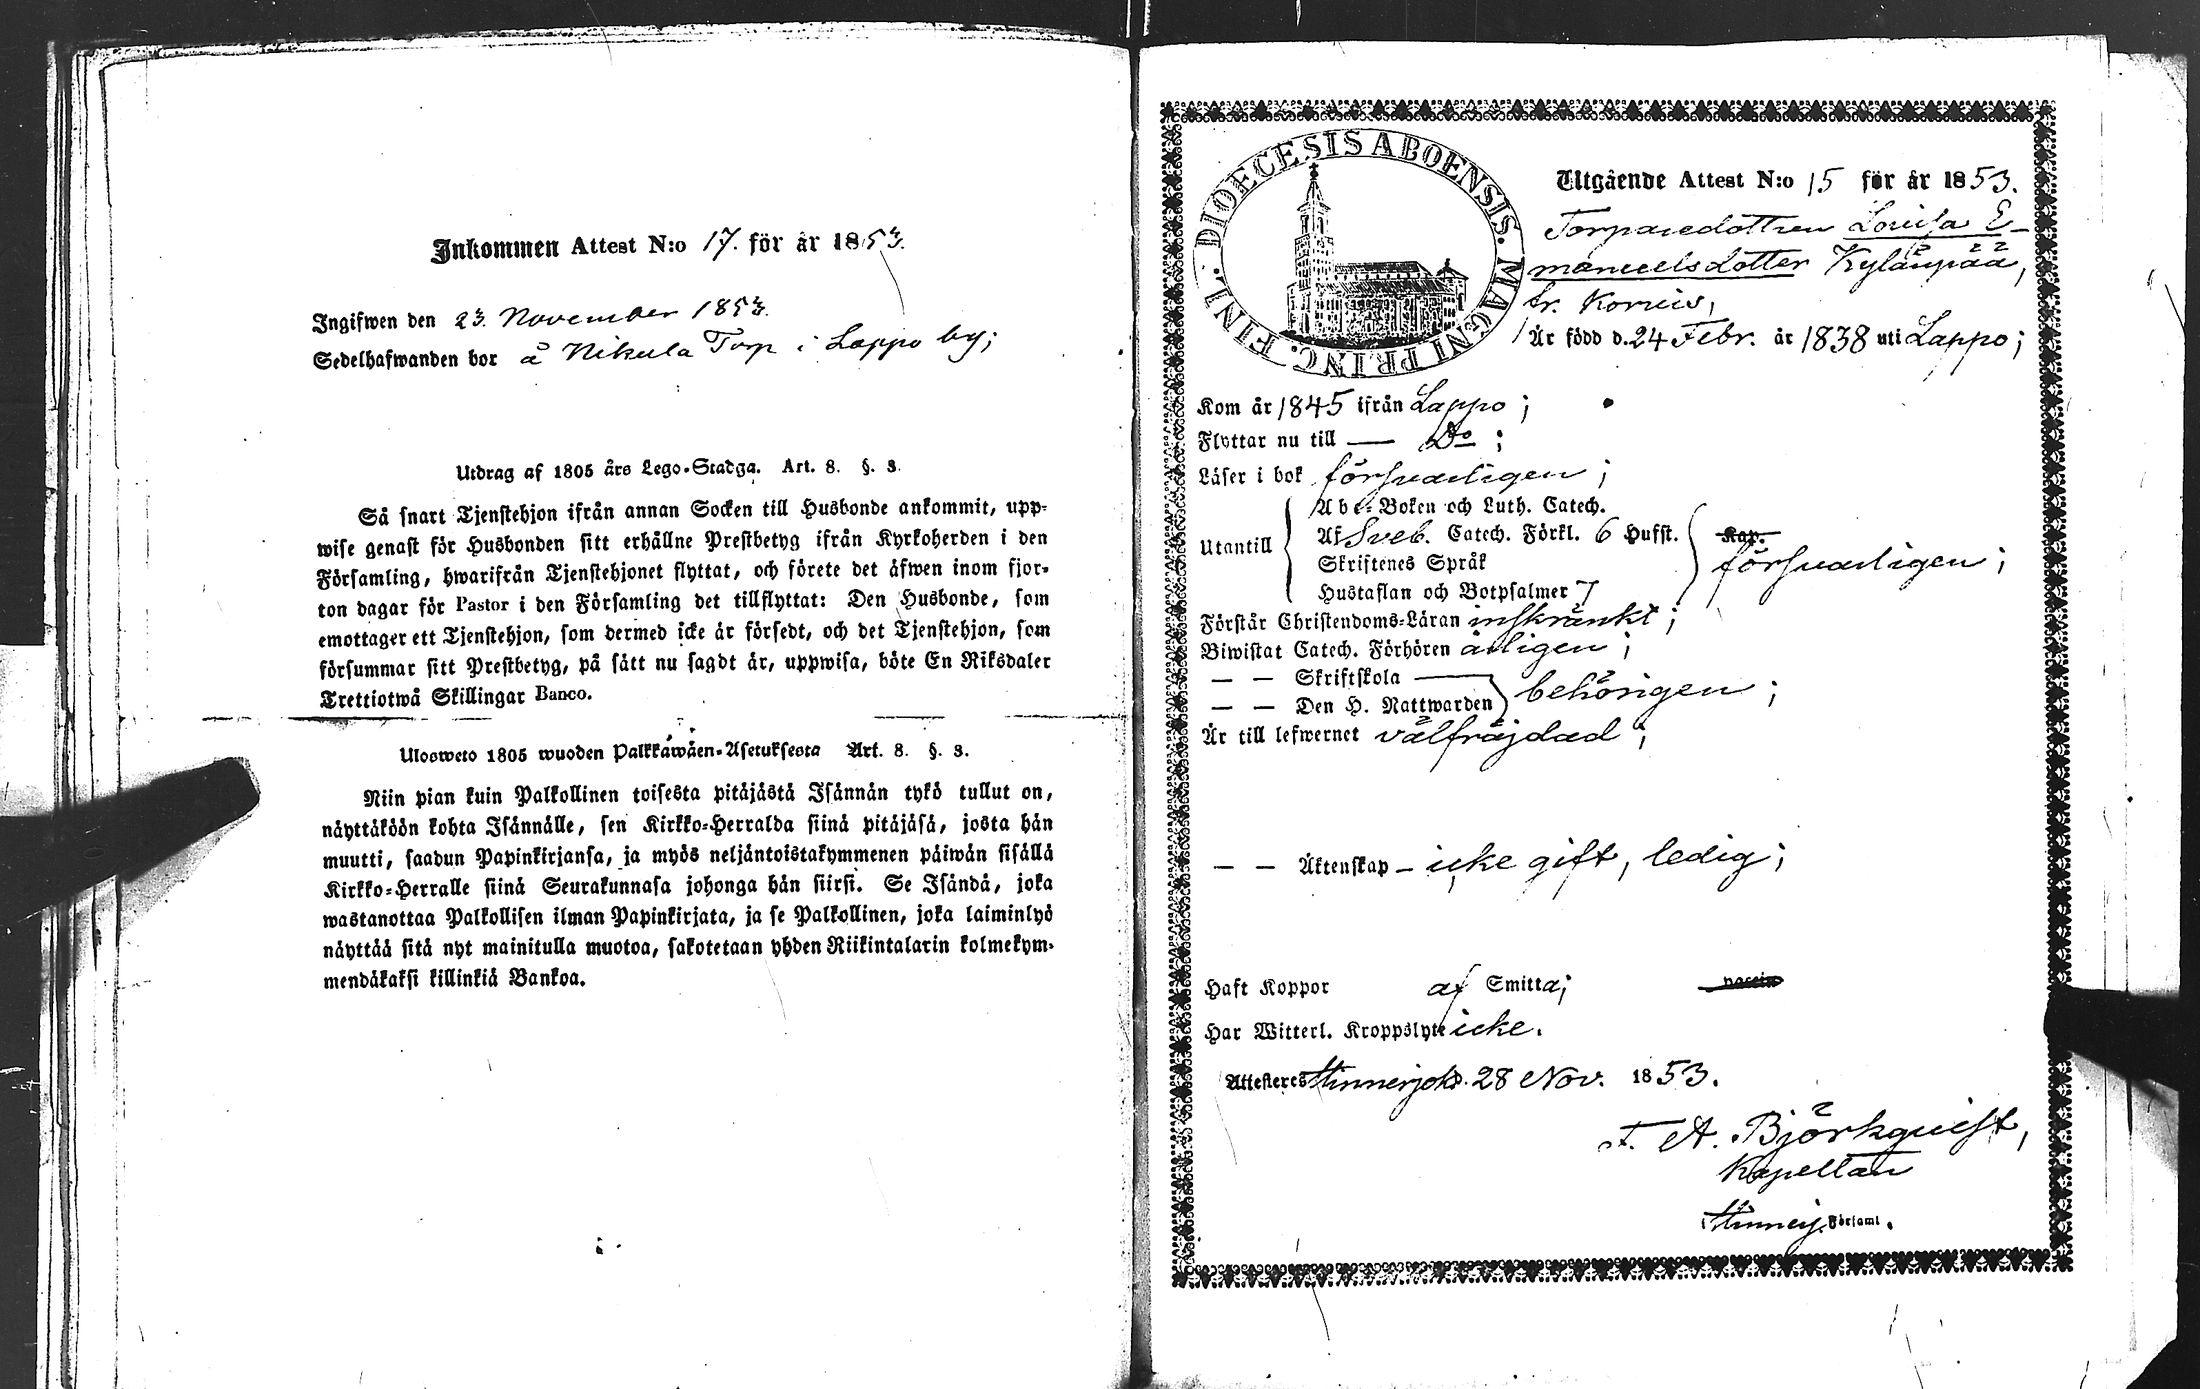 Inkommen Attest N:o 17. för år 1853.
Ingifwen den 23. November 1853.
Sedelhafwanden bor å Nikula Torp i Lappo by;
Utdrag af 1805 års Lego-Stadga. Art. 8. §. 3.
Så snart Tjenstehjon ifrån annan Socken till Husbonde ankommit, upp-
wise genast för Husbonden sitt erhållne Prestbetyg ifrån Kyrkoherden i den
Församling, hwarifrån Tjenstehjonet flyttat, och förete det äfwen inom fjor-
ton dagar för Pastor i den Församling det tillflyttat: Den Husbonde, som
emottager ett Tjenstehjon, som dermed icke är försedt, och det Tjenstehjon, som
försummar sitt Prestbetyg, på sätt nu sagdt är, uppwisa, böte En Riksdaler
Trettiotwå Skillingar Banco.
Ulosweto 1805 wuoden Palkkawäen-Asetuksesta Art. 8. §. 3.
Niin pian kuin Palkollinen toisesta pitäjästä Isännän tykö tullut on,
näyttäköön kohta Isännälle, sen Kirkko-Herralda siinä pitäjäsä, josta hän
muutti, saadun Papinkirjansa, ja myös neljäntoistakymmenen päiwän sisällä
Kirkko-Herralle siinä Seurakunnasa johonga hän siirsi. Se Isändä, joka
wastanottaa Palkollisen ilman Papinkirjata, ja se Palkollinen, joka laiminlyö
näyttää sitä nyt mainitulla muotoa, sakotetaan yhden Riikintalarin kolmekym-
mendäkaksi killinkiä Bankoa.
DIOECESIS ABOENSIS. MAGNI PRINC. FINL.
Utgående Attest N:o 15 för år 1853.
Torparedottren Lovisa E-
manuelsdotter Kylänpää,
fr. Korvis,
Är född d. 24 Febr. år 1838 uti Lappo;
Kom år 1845 ifrån Lappo;
Flyttar nu till — Do;
Läser i bok försvarligen;
Abc-Boken och Luth. Catech.
Utantill Af Sveb. Catech. Förkl. 6 Hufst. Kap. försvarligen;
Skriftenes Språk
Hustaflan och Botpsalmer 7
Förstår Christendoms-Läran inskränkt;
Biwistat Catech. Förhören årligen;
— — Skriftskola —
— — Den H. Nattwarden behörigen;
Är till lefwernet välfräjdad;
— — Äktenskap – icke gift, ledig;
Haft Koppor af Smitta; vaccin
Har Witterl. Kroppslyte icke.
Attesteres Hinnerjoki d. 28 Nov. 1853.
F. A. Björkqvist,
Kapellan
Hinnerj. Församl.